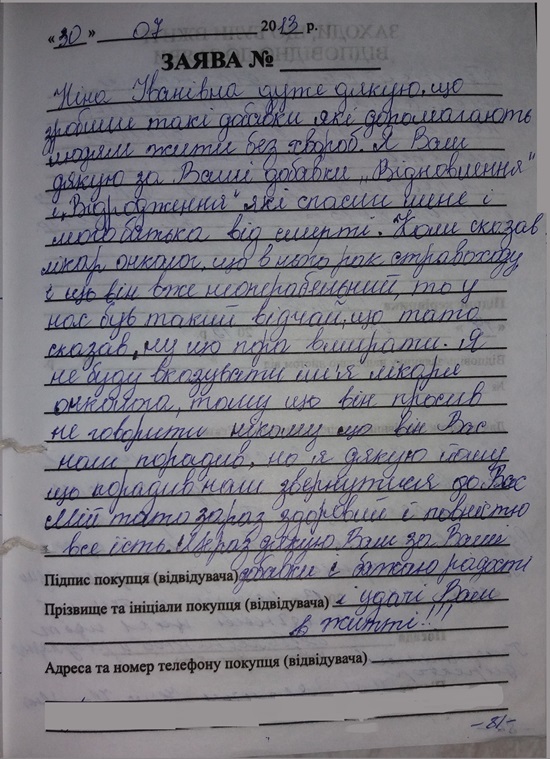 « 30 » 07 2013 р.
ЗАЯВА №
Ніна Іванівна дуже дякую, що
зробили такі добавки які допомагають
людям жити без хвороб. Я Вам
дякую за Ваші добавки „Відновлення"
і „Відродження" які спасли мене і
мого батька від смерті. Коли сказав
лікар онколог, що в нього рак стравоходу
і що він вже неоперабельний, то у
нас був такий відчай, що тато
сказав, ну що пора вмирати. Я
не буду вказувати ім'я лікаря
онколога, тому що він просив
не говорити нікому що він Вас
нам порадив, но я дякую йому
що порадив нам звернутися до Вас
Мій тато зараз здоровий і повністю
все їсть. Ще раз дякую Вам за Ваші
Підпис покупця (відвідувача) добавки і бажаю радості
Прізвище та ініціали покупця (відвідувача) і удачі Вам
в житті!!!
Адреса та номер телефону покупця (відвідувача)
- 81 -